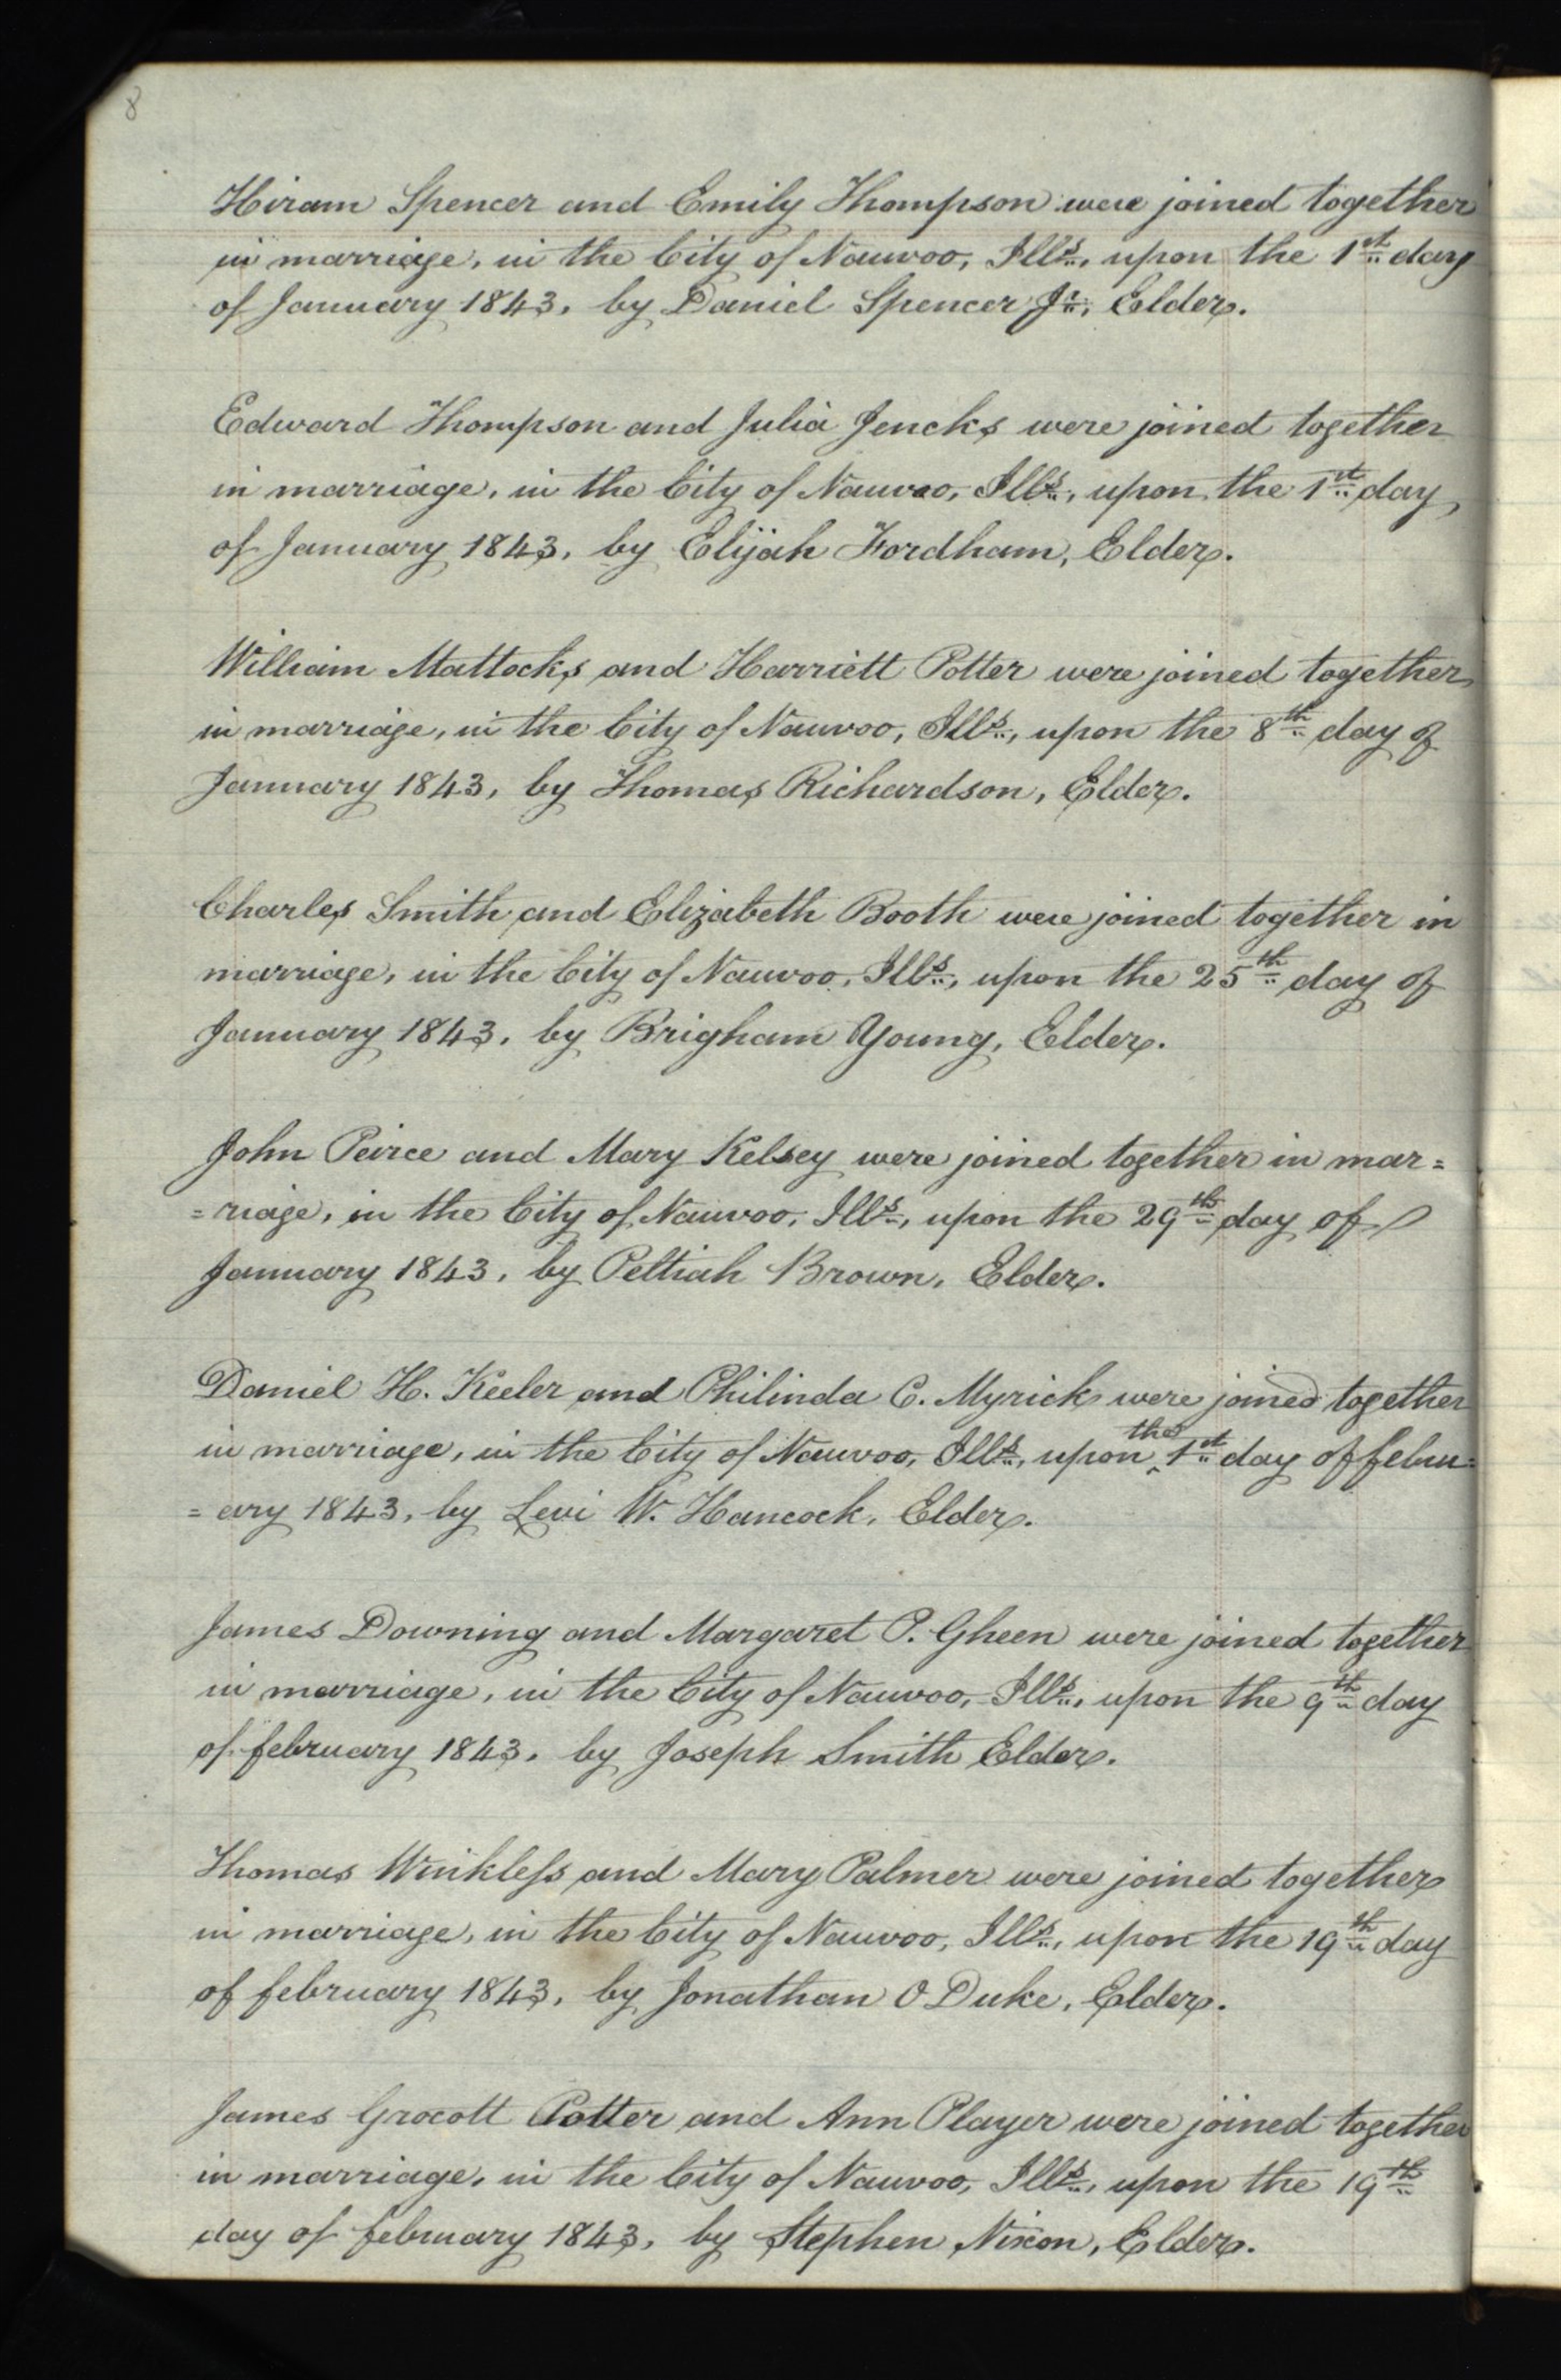 8
Hiram Spencer and Emily Thompson were joined together
in marriage, in the City of Nauvoo, Ills., upon the 1st day
of January 1843, by Daniel Spencer Jr., Elder.
Edward Thompson and Julia Jencks were joined together
in marriage, in the City of Nauvoo, Ills., upon the 1st day
of January 1843, by Elijah Fordham, Elder.
William Mattocks and Harriett Potter were joined together
in marriage, in the City of Nauvoo, Ills., upon the 8th day of
January 1843, by Thomas Richardson, Elder.
Charles Smith and Elizabeth Booth were joined together in
marriage, in the City of Nauvoo, Ills., upon the 25th day of
January 1843, by Brigham Young, Elder.
John Peirce and Mary Kelsey were joined together in mar=
=riage, in the City of Nauvoo, Ills., upon the 29th day of
January 1843, by Peltiah Brown, Elder.
Daniel H. Keeler and Philinda C. Myrick were joined together
in marriage, in the City of Nauvoo, Ills., upon the 1st day of febru=
=ary 1843, by Levi W. Hancock, Elder.
James Downing and Margaret P. Gheen were joined together
in marriage, in the City of Nauvoo, Ills., upon the 9th day
of february 1843, by Joseph Smith Elder.
Thomas Winkless and Mary Palmer were joined together
in marriage, in the City of Nauvoo, Ills., upon the 19th day
of february 1843, by Jonathan O Duke, Elder.
James Grocott Potter and Ann Player were joined together
in marriage, in the City of Nauvoo, Ills., upon the 19th
day of february 1843, by Stephen Nixon, Elder.